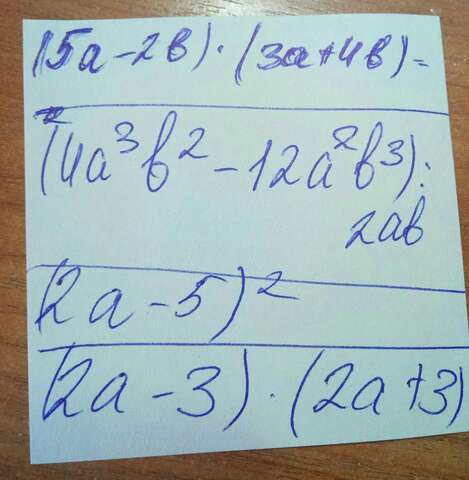 (5a-2b)·(3a+4b)=
(4a³b²-12a²b³):
2ab
(2a-5)²
(2a-3)·(2a+3)